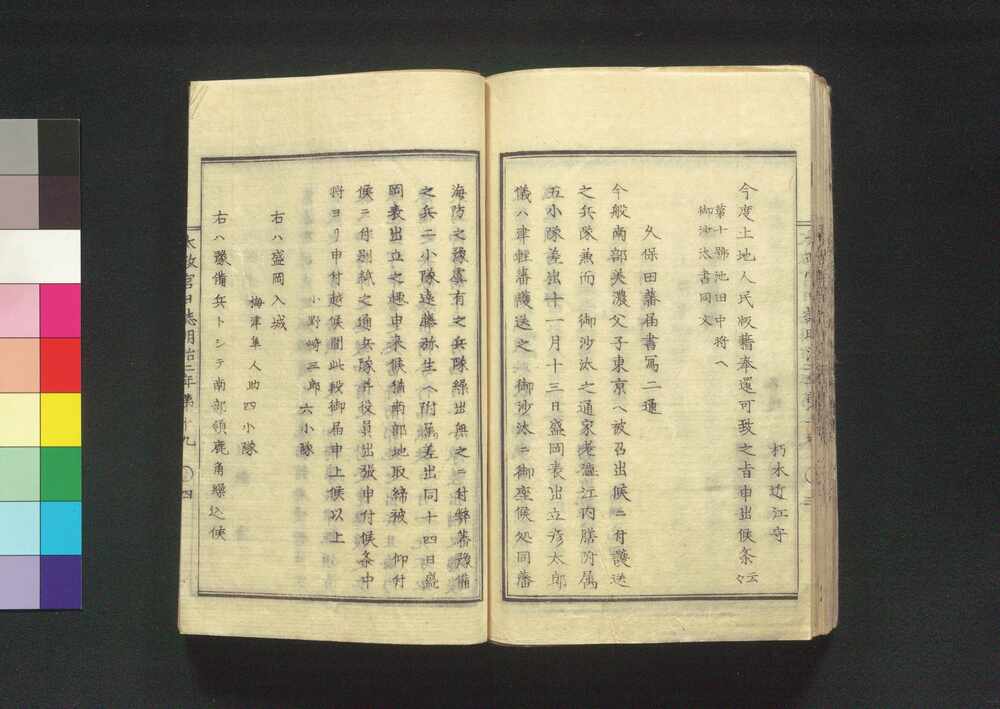 朽木近江守
今度土地人民版籍奉還可致之旨申出候条云々
第十號池田中将ヘ
御沙汰書同文
久保田藩届書寫二通
今般南部美濃父子東京ヘ被召出候ニ付護送
之兵隊兼而 御沙汰之通家老澁江内膳附属
五小隊差出十一月十三日盛岡表出立彦太郎
儀ハ津軽藩護送之 御沙汰ニ御座候処同藩
海防之豫虞有之兵隊繰出無之ニ付弊藩豫備
之兵二小隊遠藤弥生ヘ附属差出同十四日盛
岡表出立之趣申来候猶南部地取締被 仰付
候ニ付別紙之通兵隊并役員出張申付候条中
将ヨリ申付越候間此段御届申上候以上
小野崎三郎 六小隊
右ハ盛岡入城
梅津隼人助四小隊
右ハ豫備兵トシテ南部領鹿角繰込候
太政官日誌明治二年第十九 四